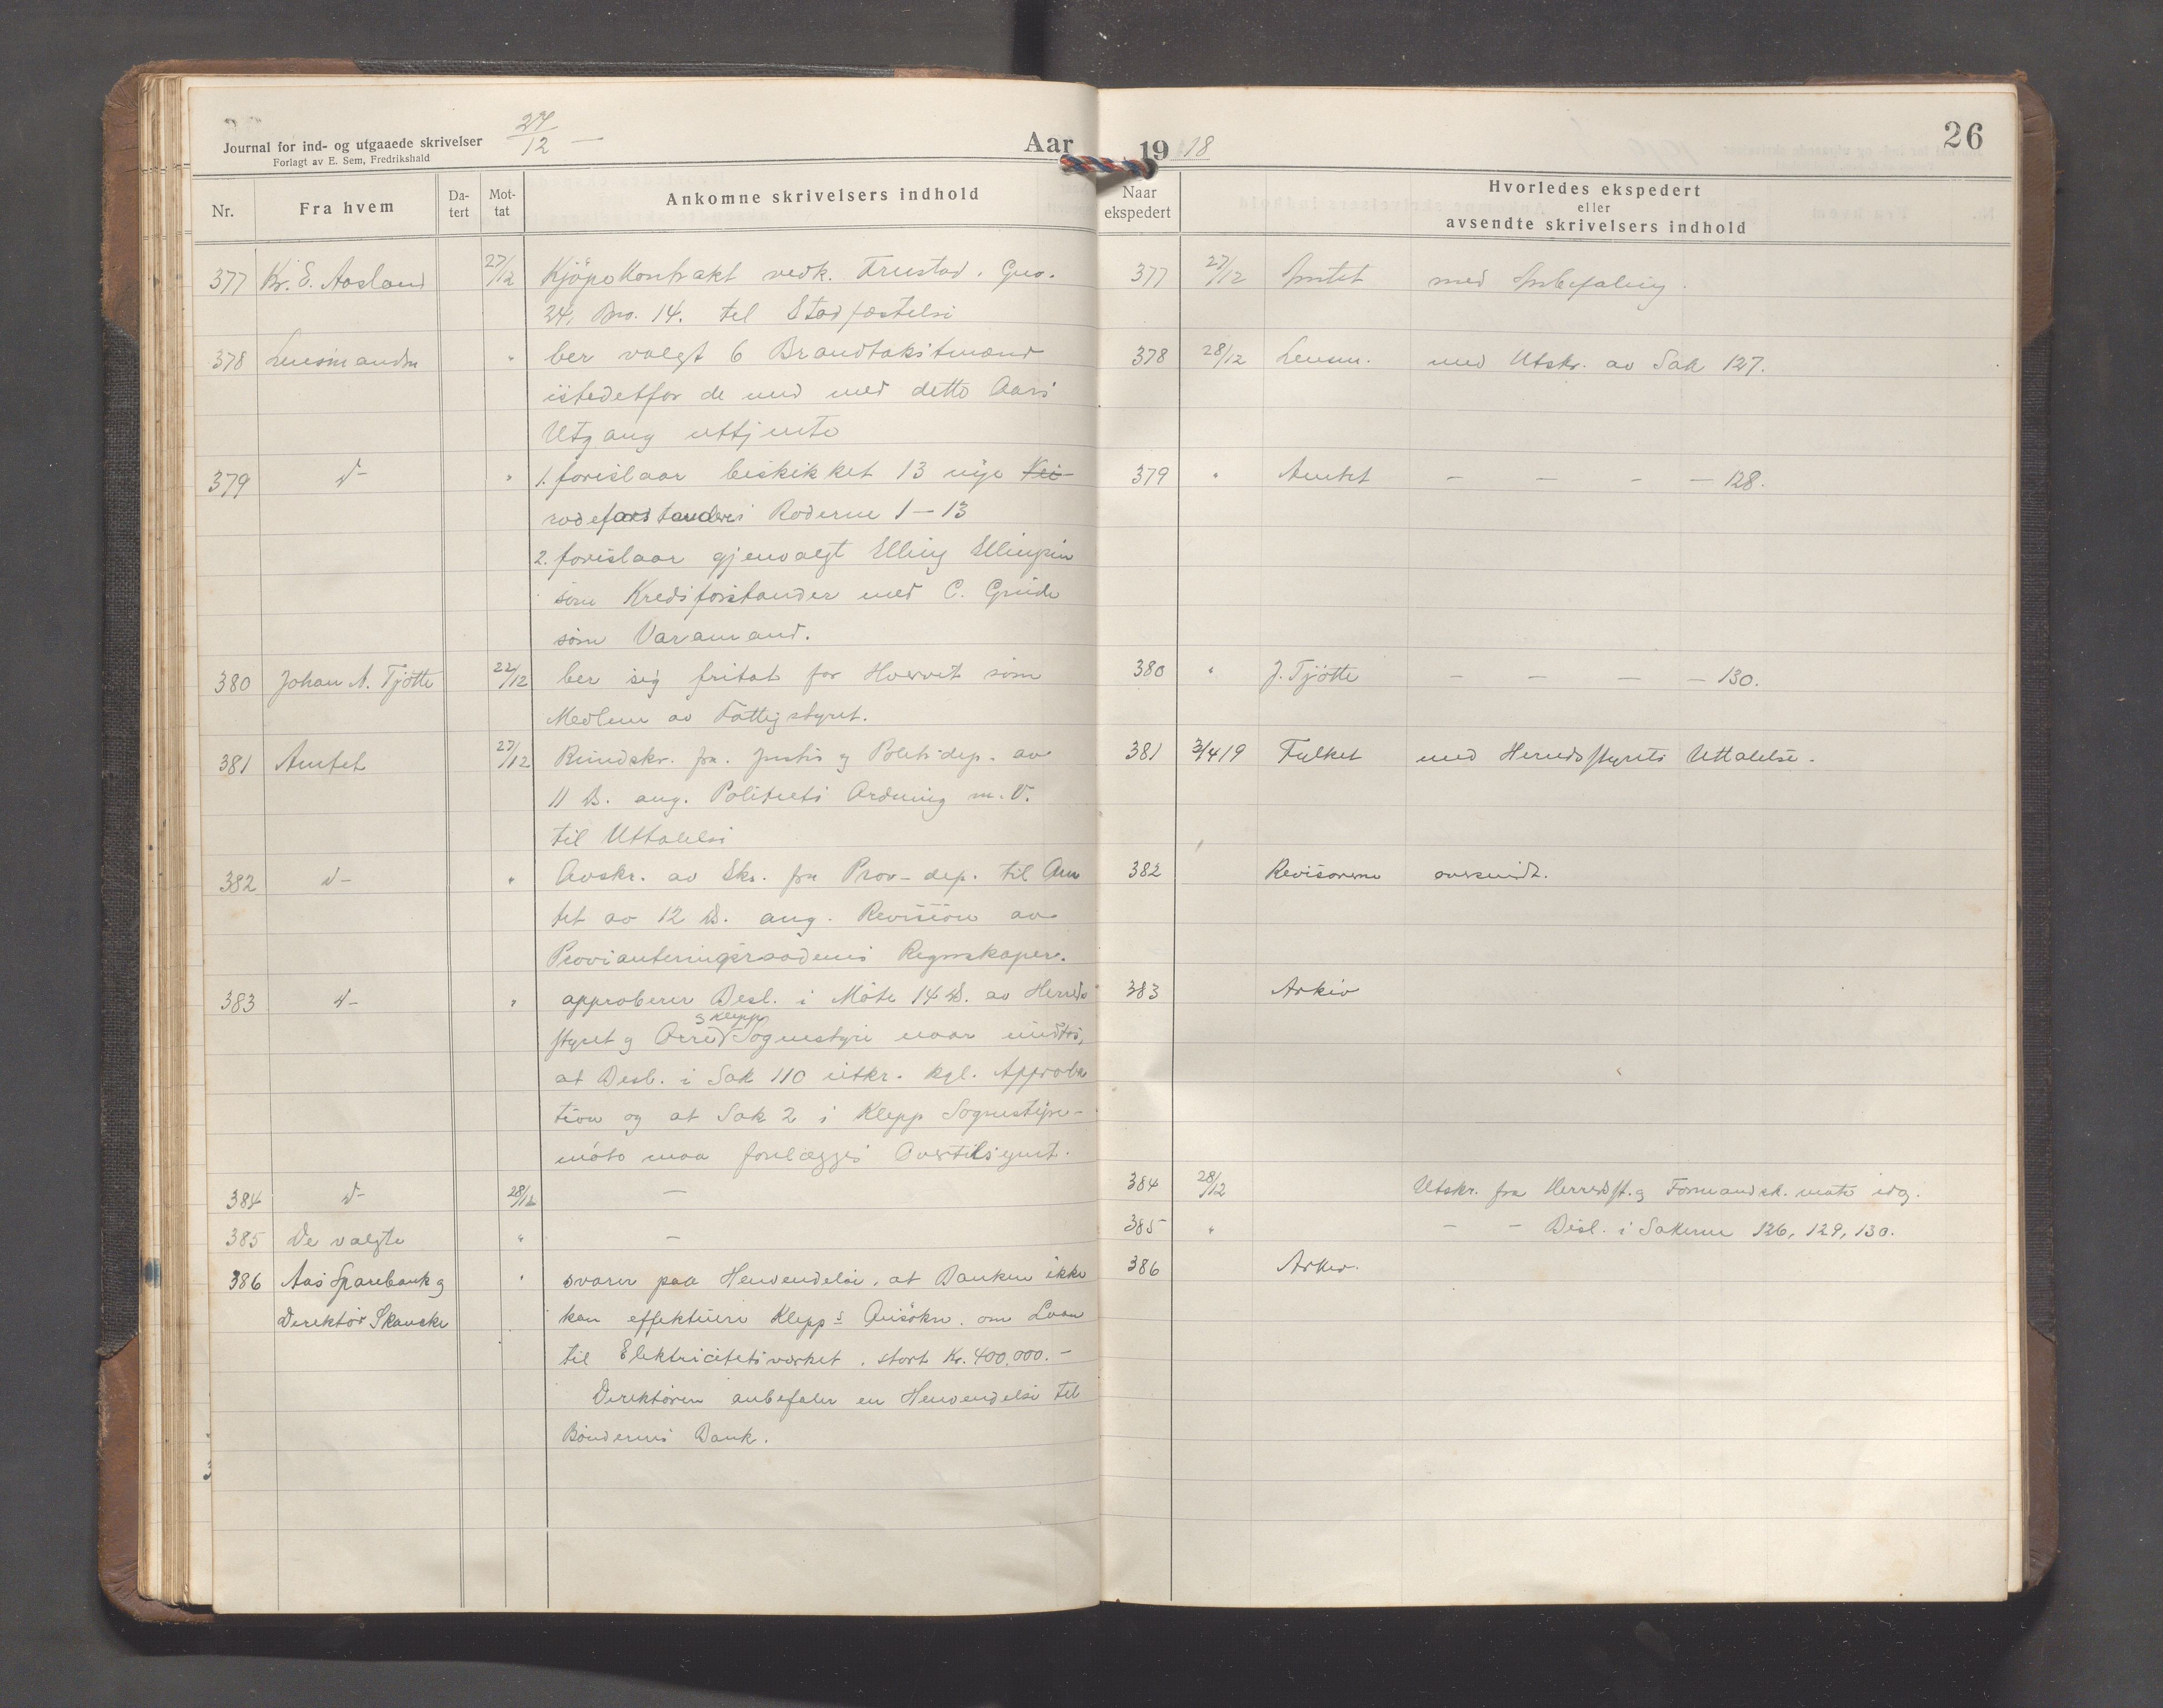 Journal for ind- og utgaaede skrivelser
Forlagt av E. Sem, Fredrikshald
27/12 —
Aar
Nr.
Fra hvem
Da-
tert
Mot-
tat
Ankomne skrivelsers indhold
377 Kr. E. Aasland 27/12 Kjöpekontrakt vedk. Frustad. Gno.
24, Bno. 14. til Stadfæstelse
378 Lensmanden " ber valgt 6 Brandtakstmænd
istedetfor de med dette Aars
Utgang uttjente
379 d- " 1. foreslaar beskikket 13 nye Vei-
rodeforstandere i Roderne 1–13
2. foreslaar gjenvalgt Elling Ellingsen
som Kredsforstander med C. Grude
som Varamand.
380 Johan A. Tjøtte 22/12 ber sig fritat for Hvervet som
Medlem av Fattigstyret.
381 Amtet 27/12 Rundskr. fra Justis og Politidep. av
11 ds. ang. Politiets Ordning m. v.
til Uttalelse
382 d- " Avskr. av Skr. fra Prov-dep. til Am
tet av 12 ds. ang. Revision av
Provianteringsraadenes Regnskaper.
383 d- " approberer Besl. i Møte 14 ds. av Herreds
styret og Orre og Klepp Sognestyre naar undtas,
at Besl. i Sak 110 utkr. kgl. Approba
tion og at Sak 2 i Klepp Sognestyre-
møte maa forelægges Overtilsynet.
384 d- 28/12 —
385 De valgte " —
386 Aas Sparebank og " svarer paa Henvendelse, at Banken ikke
Direktør Skavske kan effektuere Klepps Ansökn. om Laan
til Elektricitetsverket, stort Kr. 400,000.-
Direktøren anbefaler en Henvendelse til
Bøndernes Bank.
19 18
26
Naar
ekspedert
Hvorledes ekspedert
eller
avsendte skrivelsers indhold
377 27/12 Amtet med Anbefaling.
378 28/12 Lensm. med Utskr. av Sak 127.
379 " Amtet — — - — 128.
380 " J. Tjøtte — — — — 130.
381 3/4 19 Fylket med Herredsstyrets Uttalelse.
382 Revisorerne oversendt.
383 Arkiv
384 28/12 Utskr. fra Herredsst. og Formandsk. møte idag.
385 " — — Besl. i Sakerne 126, 129, 130.
386 Arkiv.